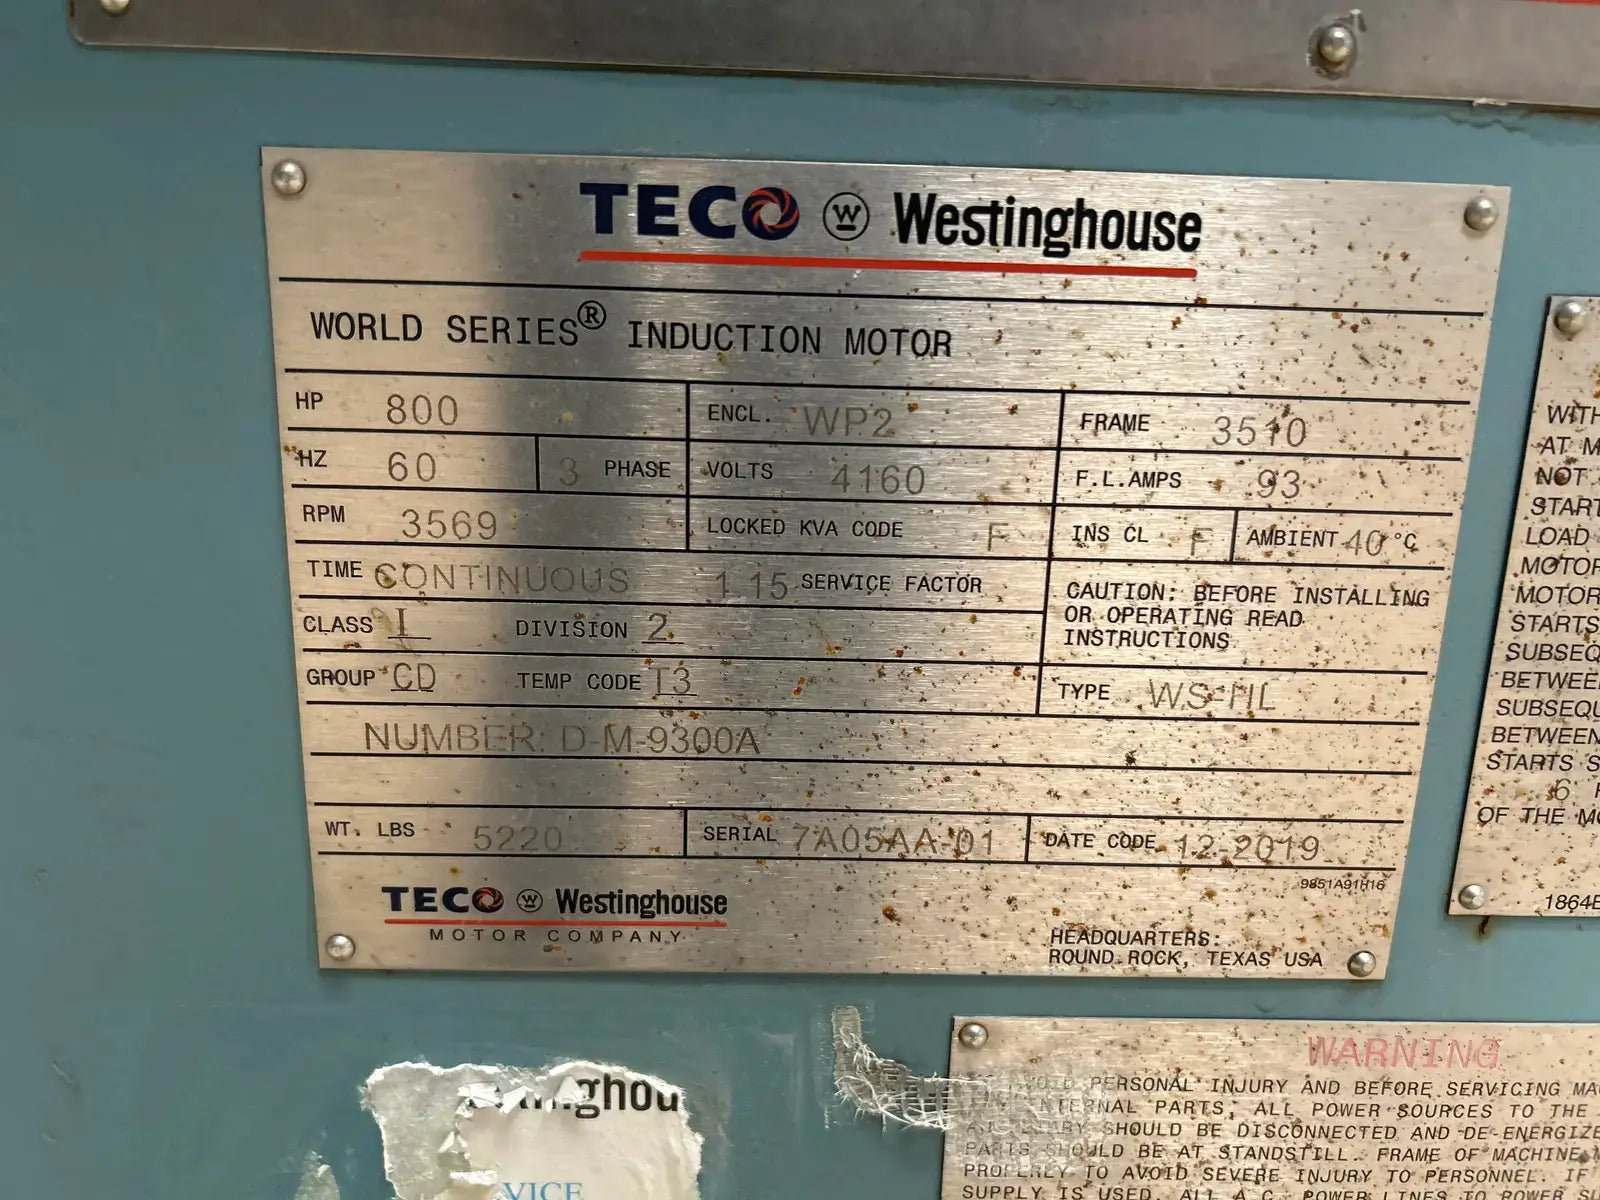 TECO W Westinghouse
WORLD SERIES® INDUCTION MOTOR
HP 800 ENCL. WP2 FRAME 3510
HZ 60 3 PHASE VOLTS 4160 F.L.AMPS 93
RPM 3569 LOCKED KVA CODE F INS CL F AMBIENT 40 °C
TIME CONTINUOUS 1.15 SERVICE FACTOR
CAUTION: BEFORE INSTALLING
OR OPERATING READ
INSTRUCTIONS
CLASS I DIVISION 2
GROUP CD TEMP CODE T3 TYPE WS-HL
NUMBER: D-M-9300A
WT. LBS 5220 SERIAL 7A05AA-01 DATE CODE 12-2019
9851A91H16
TECO W Westinghouse
MOTOR COMPANY
HEADQUARTERS:
ROUND ROCK, TEXAS USA
WITH
AT M
NOT
START
LOAD
MOTOR
MOTOR
STARTS
SUBSEQ
BETWEE
SUBSEQU
BETWEEN
STARTS S
6
OF THE MO
1864E
WARNING
PERSONAL INJURY AND BEFORE SERVICING MA
PARTS, ALL POWER SOURCES TO THE
SHOULD BE DISCONNECTED AND DE-ENERGIZE
PARTS SHOULD BE AT STANDSTILL. FRAME OF MACHINE M
PROPERLY TO AVOID SEVERE INJURY TO PERSONNEL. IF
SUPPLY IS USED, ALL A.C. POWER LINES TO POWER SU
nghou
VICE